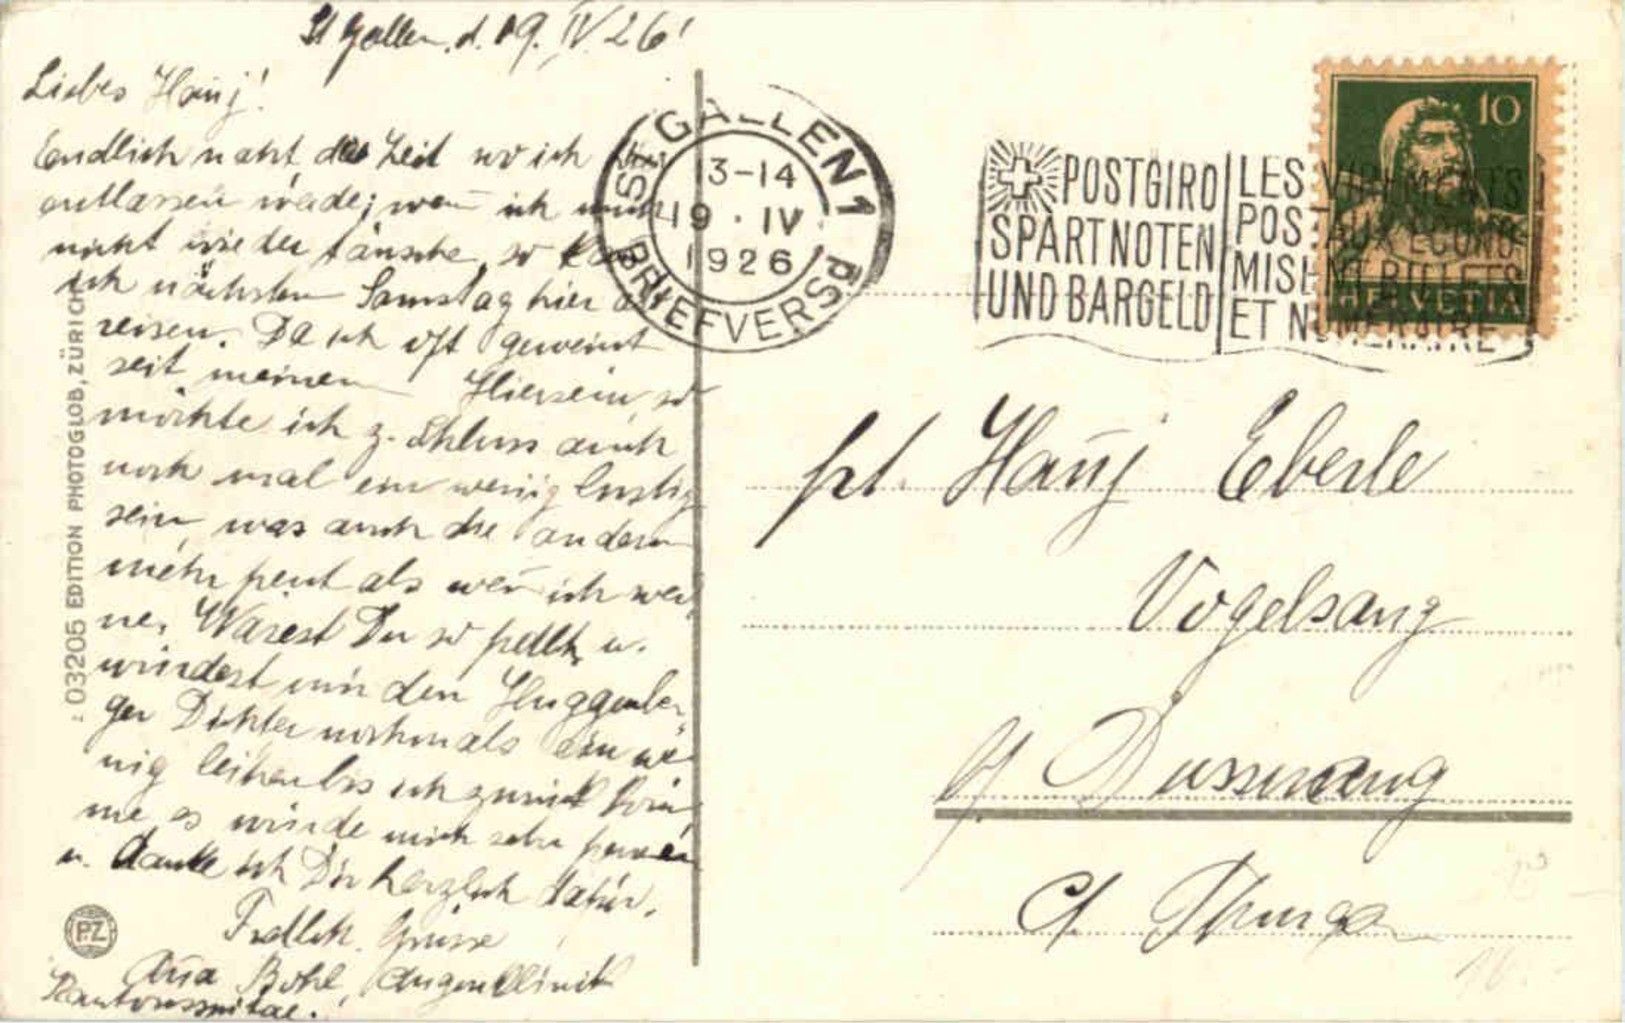 St Gallen, d. 19. IV 26!
Liebes Hanj!
Endlich naht die Zeit wo ich hier
entlassen werde; wen̄ ich mich
nicht wieder täusche, so kan̄
ich nächsten Samstag hier ab
reisen. Da ich oft geweint
seit meinem Hiersein, so
möchte ich z. Schluss auch
noch mal ein wenig lustig
sein, was auch die andern
mehr freut als wen̄ ich wei-
ne. Wärest Du so freundl. u.
würdest mir den Huggenber-
ger Dichter nochmals ein we-
nig leihen bis ich zurück kom-
me es würde mich sehr freuen
u. danke ich Dir herzlich dafür.
Frdlch. Grüsse
Bohl, Augenklinik
Kantonsspital.
03205 EDITION PHOTOGLOB, ZÜRICH
PZ
ST. GALLEN 1
13-14
19 · IV
1926
BRIEFVERSD
POSTGIRO
SPART NOTEN
UND BARGELD
LES VIREMENTS
POSTAUX ECONO-
MISENT BILLETS
ET NUMERAIRE
10
HELVETIA
frl. Hanj Eberle
Vogelsang
b/ Dussnang
Ct. Thurgau